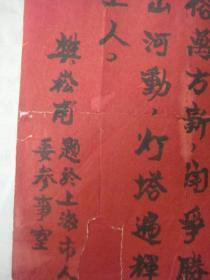 俗萬方新，闹爭勝
山河動，灯塔遍輝
主人。
樊崧甫
題於上海市人
委参事室